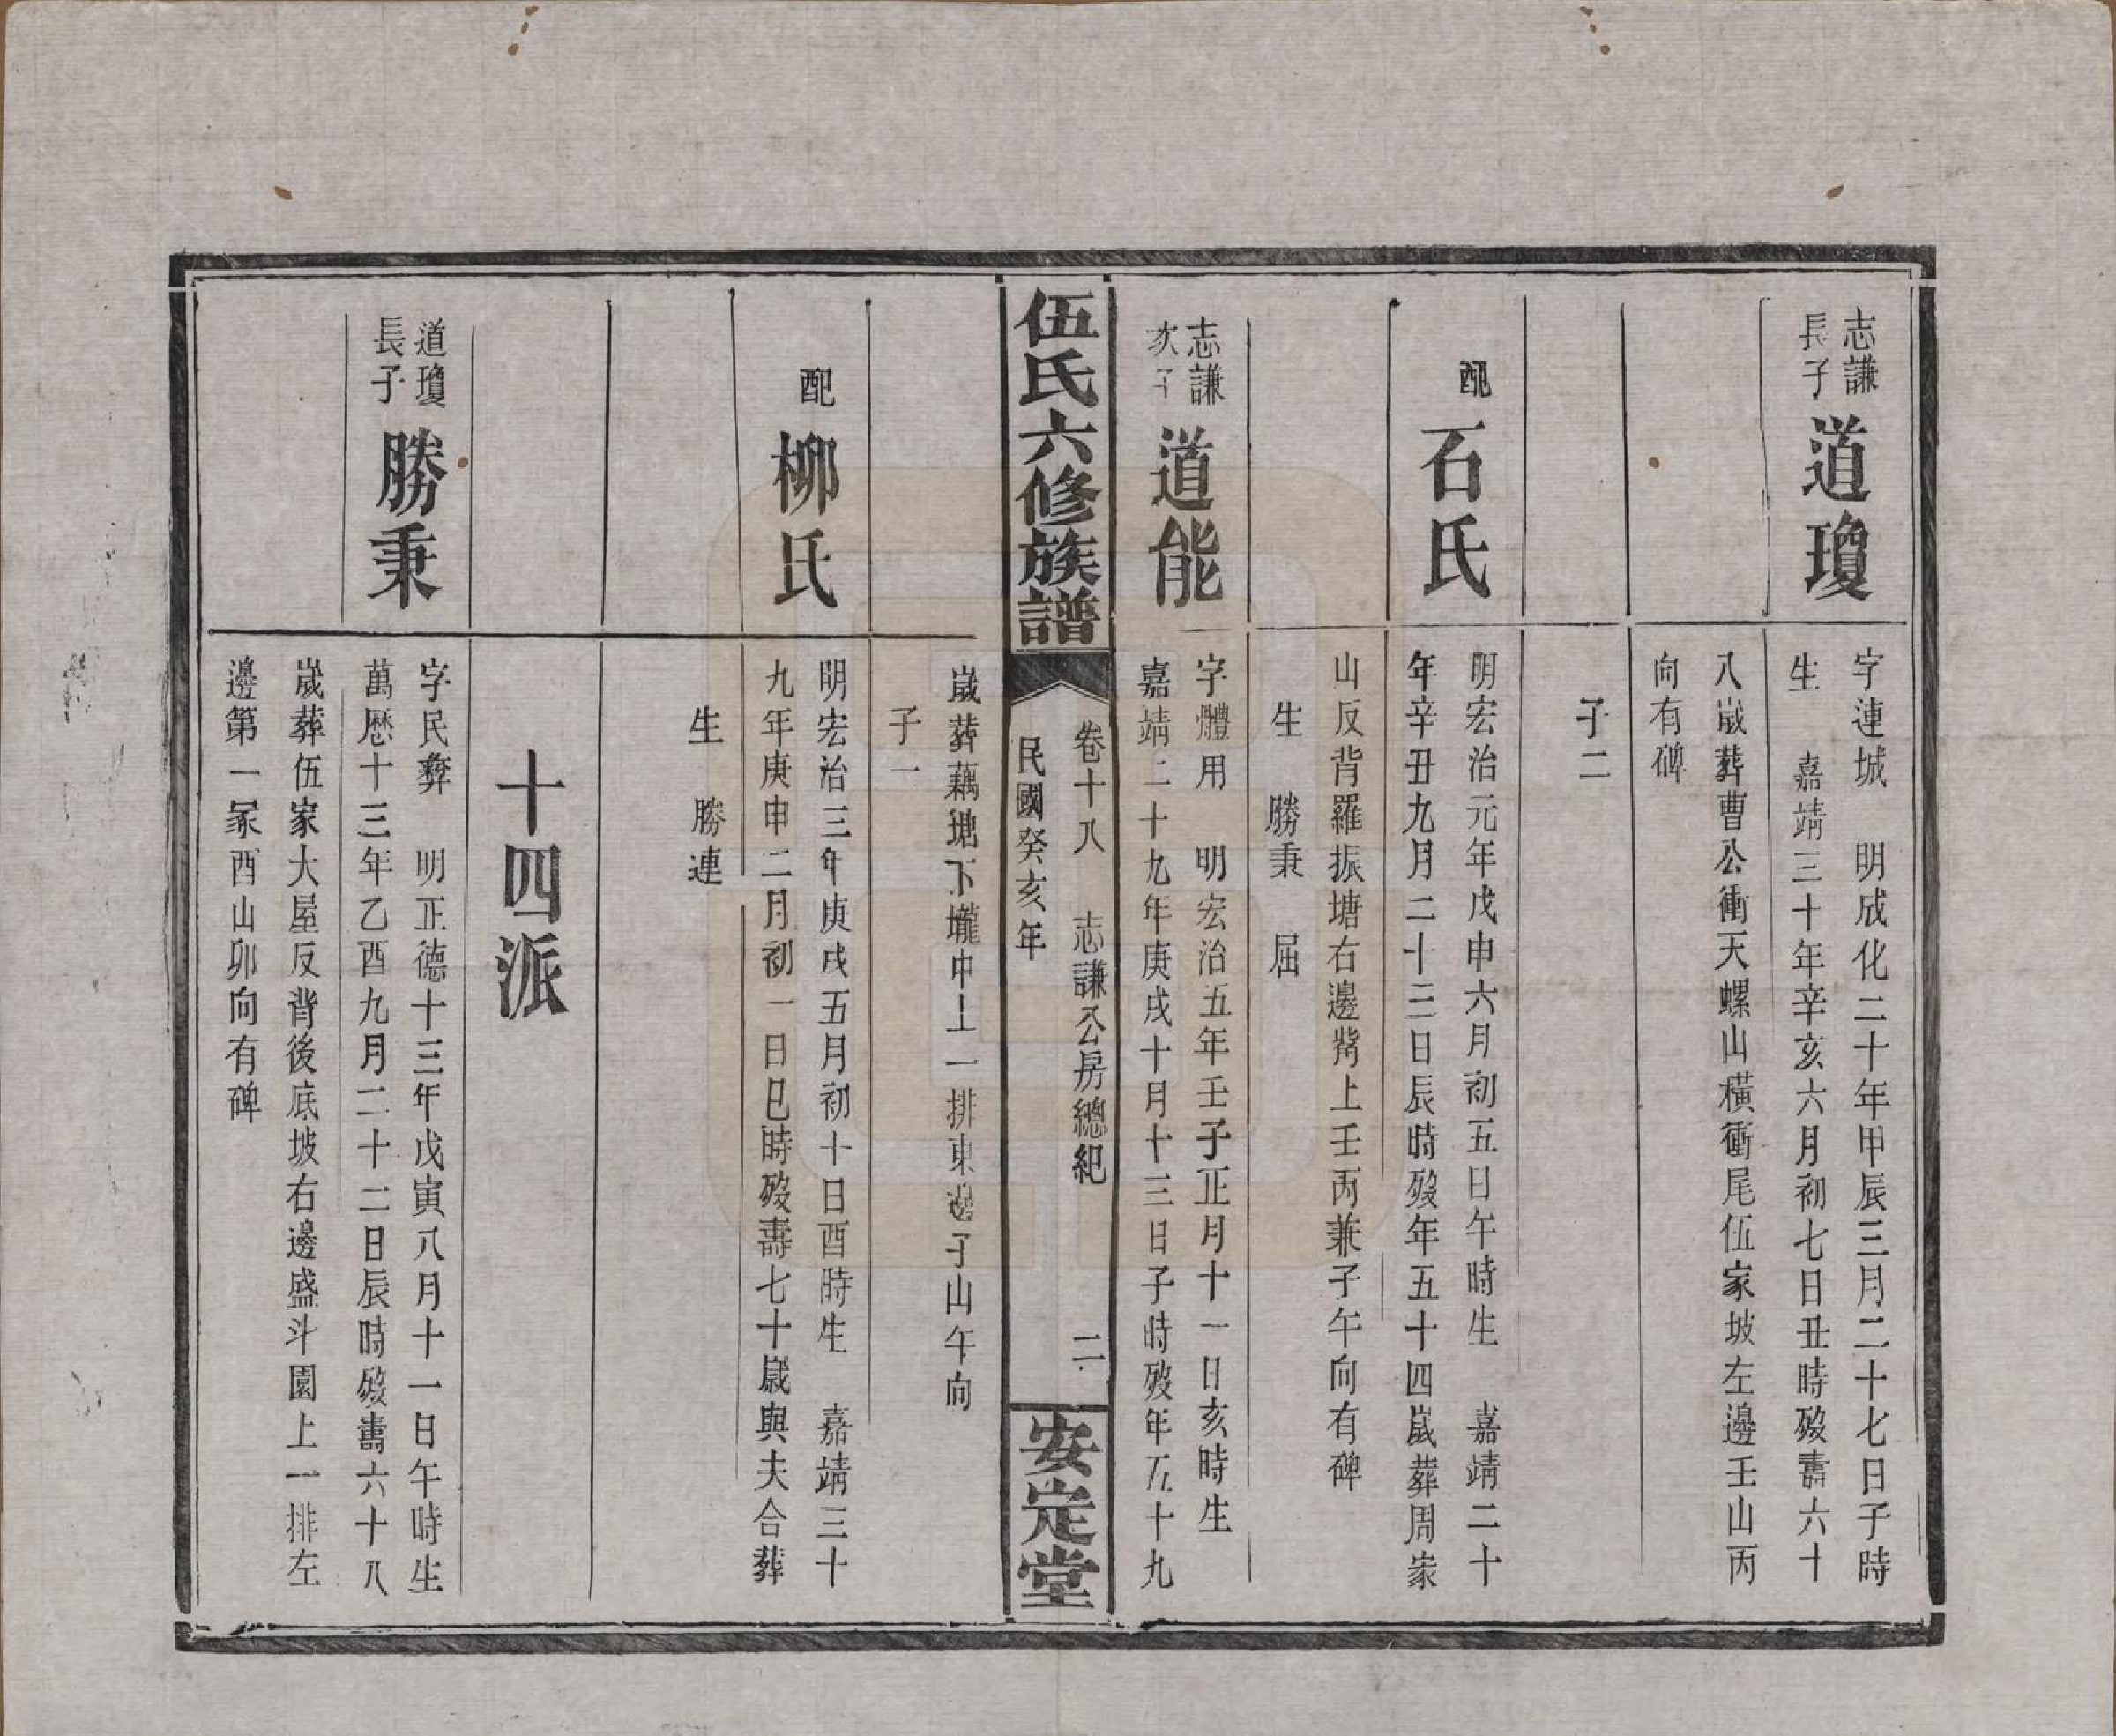 志謙
長子
道瓊
字連城　明成化二十年甲辰三月二十七日子時
生　嘉靖三十年辛亥六月初七日丑時歿壽六十
八歲葬曹公衝天螺山橫衝尾伍家坡左邊壬山丙
向有碑
子二
配
石氏
明宏治元年戊申六月初五日午時生　嘉靖二十
年辛丑九月二十三日辰時歿年五十四歲葬周家
山反背羅振塘右邊嘴上壬丙兼子午向有碑
生　勝秉　屆
志謙
次子
道能
字體用　明宏治五年壬子正月十一日亥時生
嘉靖二十九年庚戌十月十三日子時歿年五十九
伍氏六修族譜
卷十八　志謙公房總紀　二
民國癸亥年
安定堂
歲葬藕塘下壠中上一排東邊子山午向
子一
配
柳氏
明宏治三年庚戌五月初十日酉時生　嘉靖三十
九年庚申二月初一日巳時歿壽七十歲與夫合葬
生　勝連
十四派
道瓊
長子
勝秉
字民彝　明正德十三年戊寅八月十一日午時生
萬歷十三年乙酉九月二十二日辰時歿壽六十八
歲葬伍家大屋反背後底坡右邊盛斗園上一排左
邊第一冢酉山卯向有碑